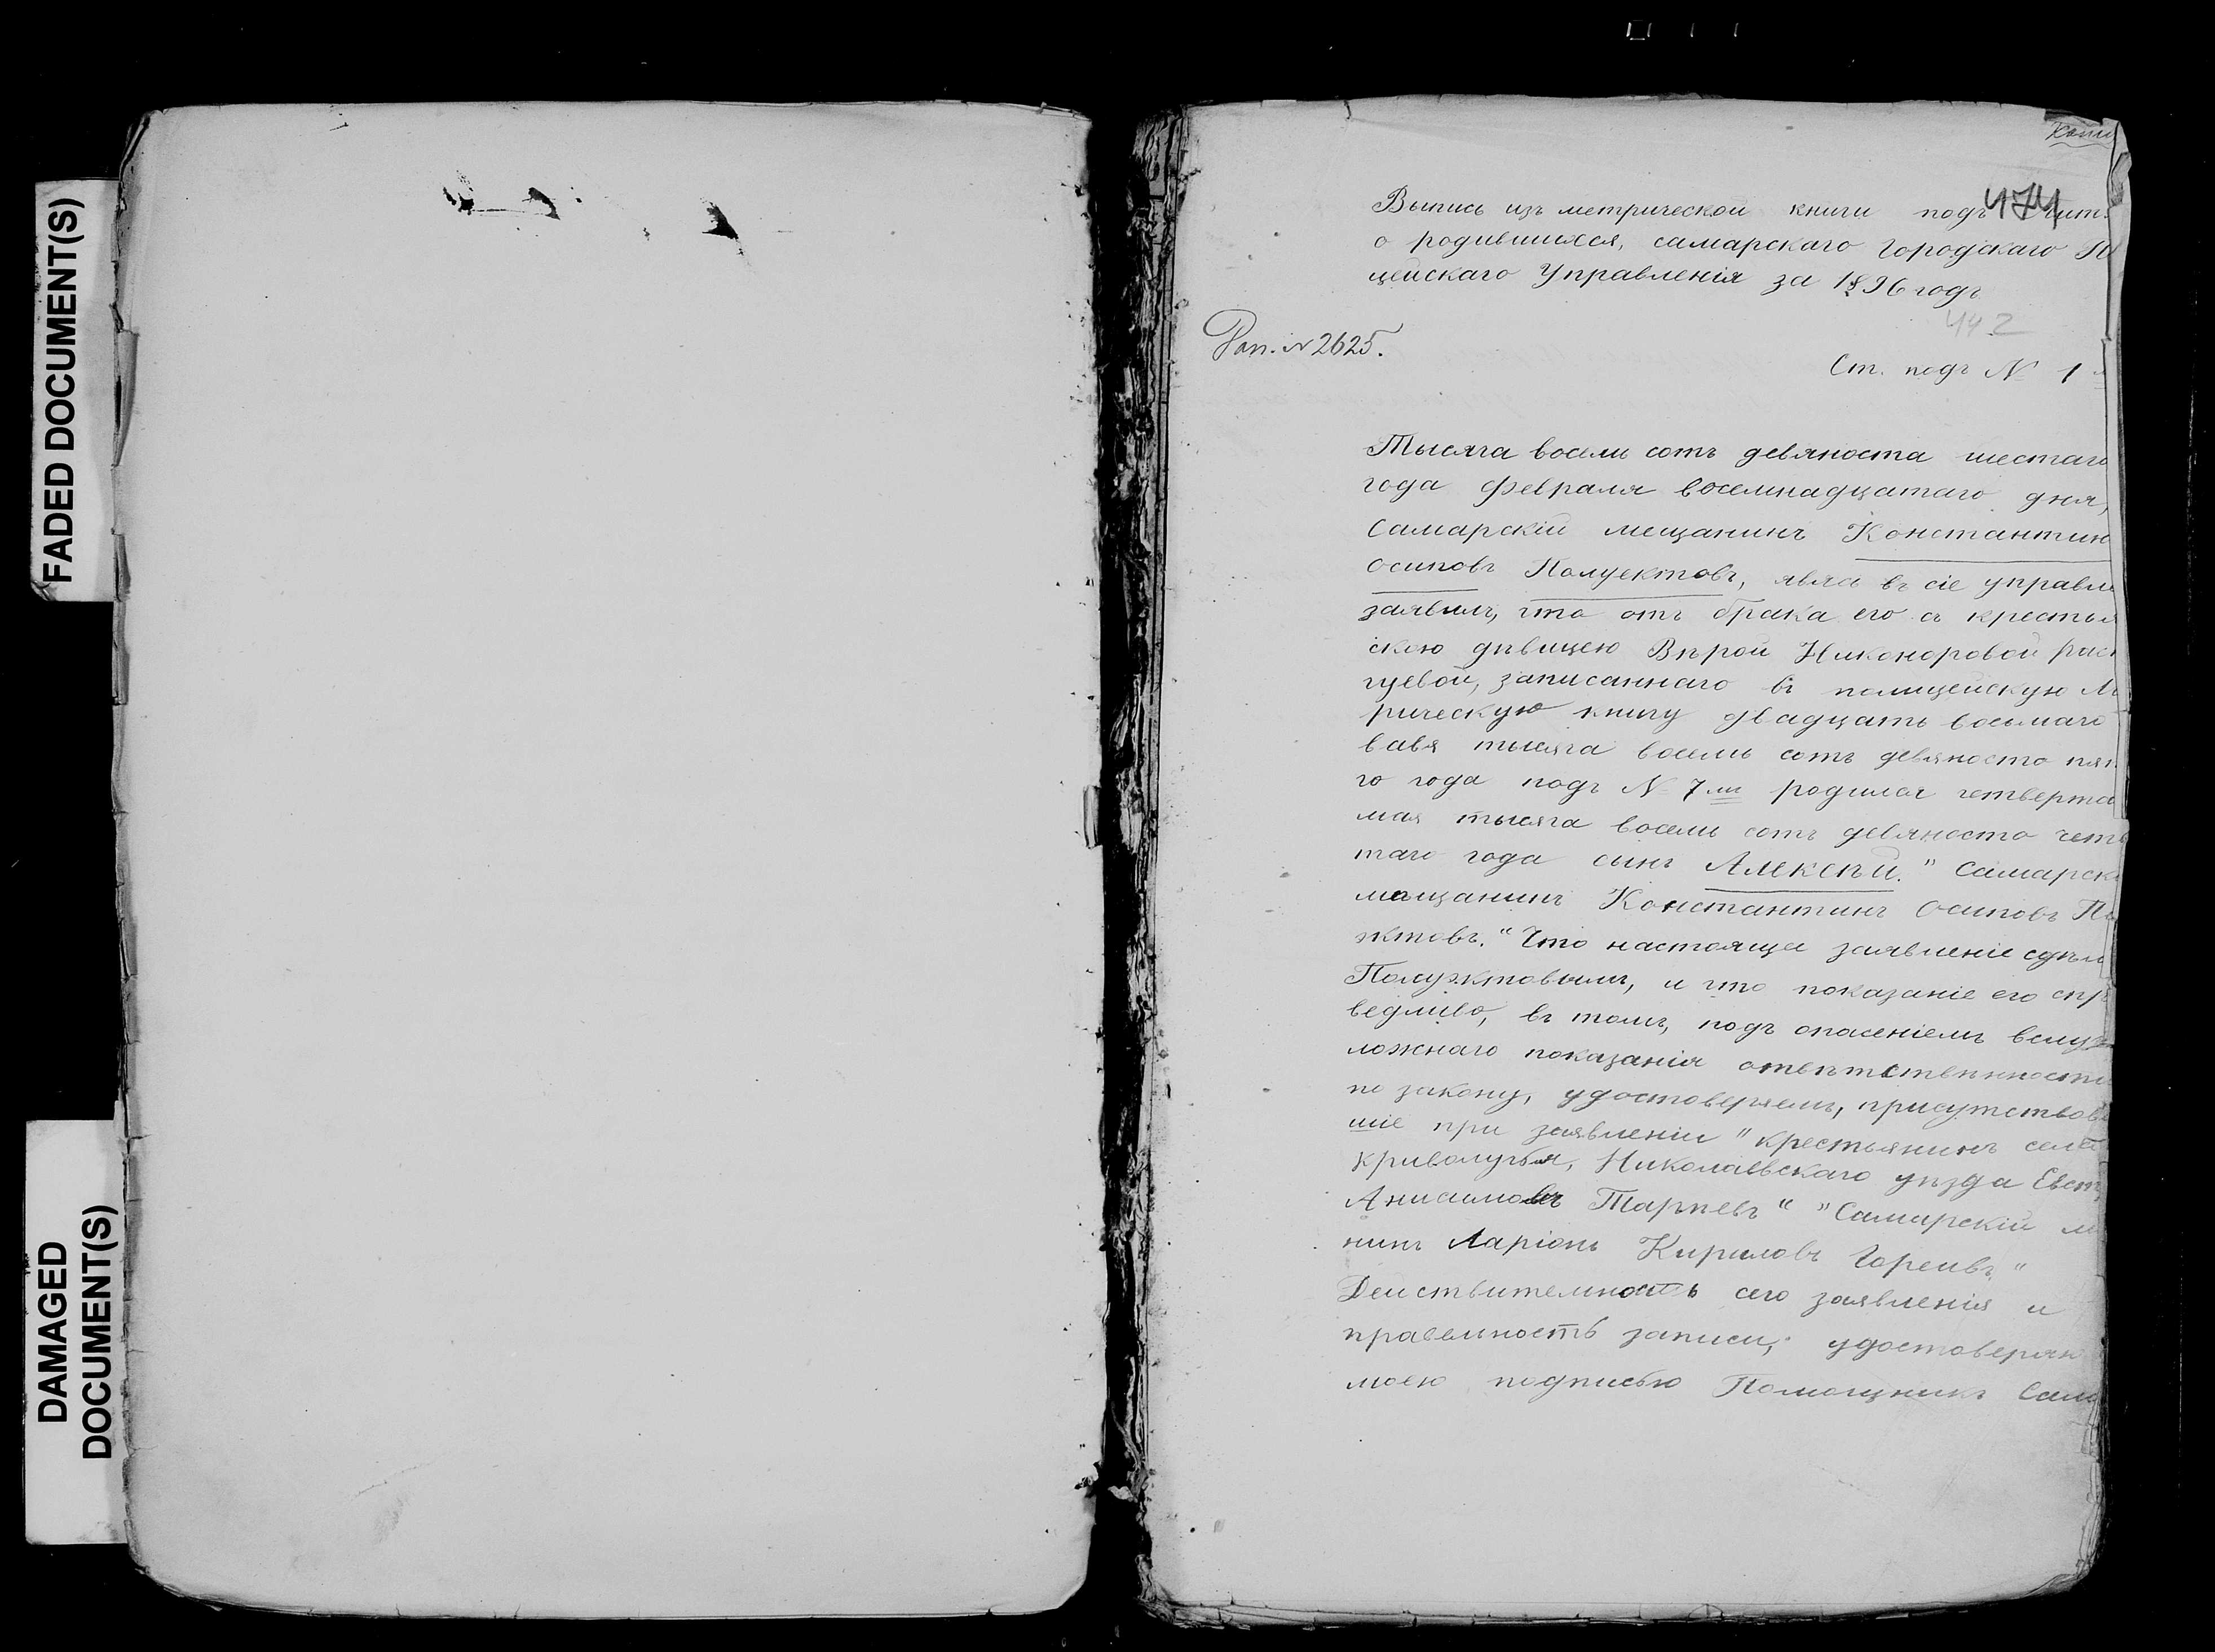 FADED DOCUMENT(S)
DAMAGED
DOCUMENT(S)
Копи
474
Выпись изъ метрической книги подъ лит.
о родившихся, самарскаго Городскаго П
цейскаго Управленія за 1896 годъ
442
Рап. № 2625.
Ст. подъ № 1
Тысяча восемь сотъ девяноста шестаго
года февраля восемнадцатаго дня,
Самарскій мещанинъ Константин
Осиповъ Полуектовъ, явясь въ сіе управле
заявилъ, что отъ брака его съ крестья
скою дѣвицею Вѣрой Никоноровой
гуевой, записаннаго въ полицейскую М
рическую книгу двадцать восьмаго
варя тысяча восемь сотъ девяносто пят
го года подъ № 7мъ родился четвертаг
мая тысяча восемь сотъ девяносто четв
таго года сынъ Алексѣй." Самарск
мещанинъ Константинъ Осиповъ По
эктовъ." Что настояще заявленіе сдѣла
Полуэктовымъ, и что показаніе его спр
ведливо, въ томъ, подъ опасеніемъ въ случ
ложнаго показанія ответственности
по закону, удостоверяемъ, присутствов
шіе при заявленіи "крестьянинъ села
Криволучья, Николаевскаго уѣзда Евст
Анисимовъ Тарпевъ" "Самарскій м
нинъ Ларіонъ Кириловъ Гореивъ"
Действительность сего заявленія и
правельность записи, удостоверяю
моею подписью Помощникъ Сам